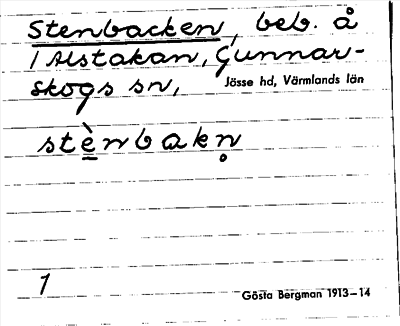 Stenbacken, beb. å
1 Alstakan, Gunnar-
skogs sn,
Jösse hd, Värmlands län
stè̱nbakn̥
1
Gösta Bergman 1913–14